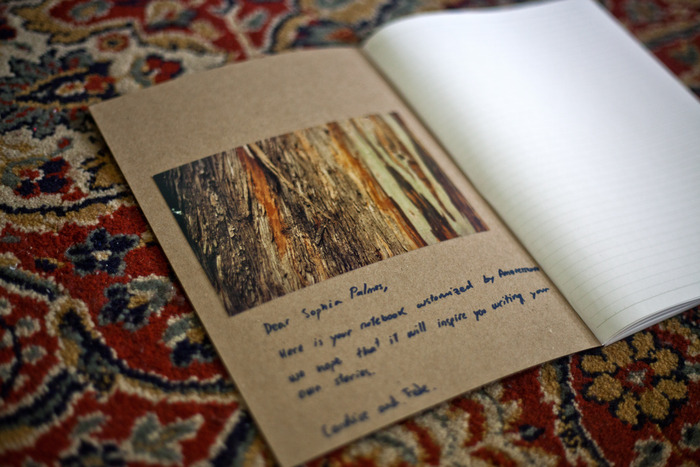 Dear Sophia Palmas,
Here is your notebook customized by
we hope that it will inspire you writing your
own stories.
and